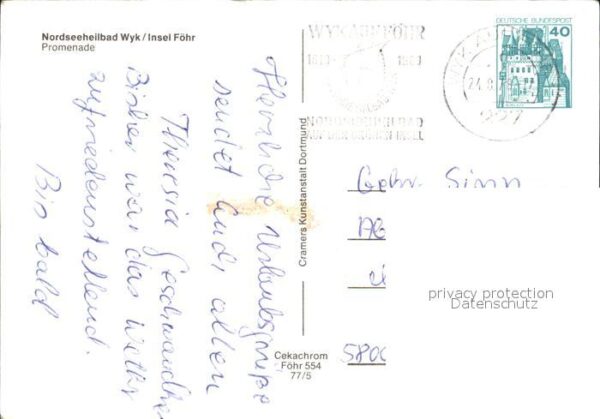 Nordseeheilbad Wyk / Insel Föhr
Promenade
Herzliche Urlaubsgrüße
sendet Euch allen
Theresia
Bisher war das Wetter
zufriedenstellend.
Bis bald
Cramers Kunstanstalt Dortmund
Cekachrom
Föhr 554
77/5
WYK AUF FÖHR
NORDSEEHEILBAD
AUF DER GRÜNEN INSEL
DEUTSCHE BUNDESPOST
40
Gebr. Simn
580
privacy protection
Datenschutz